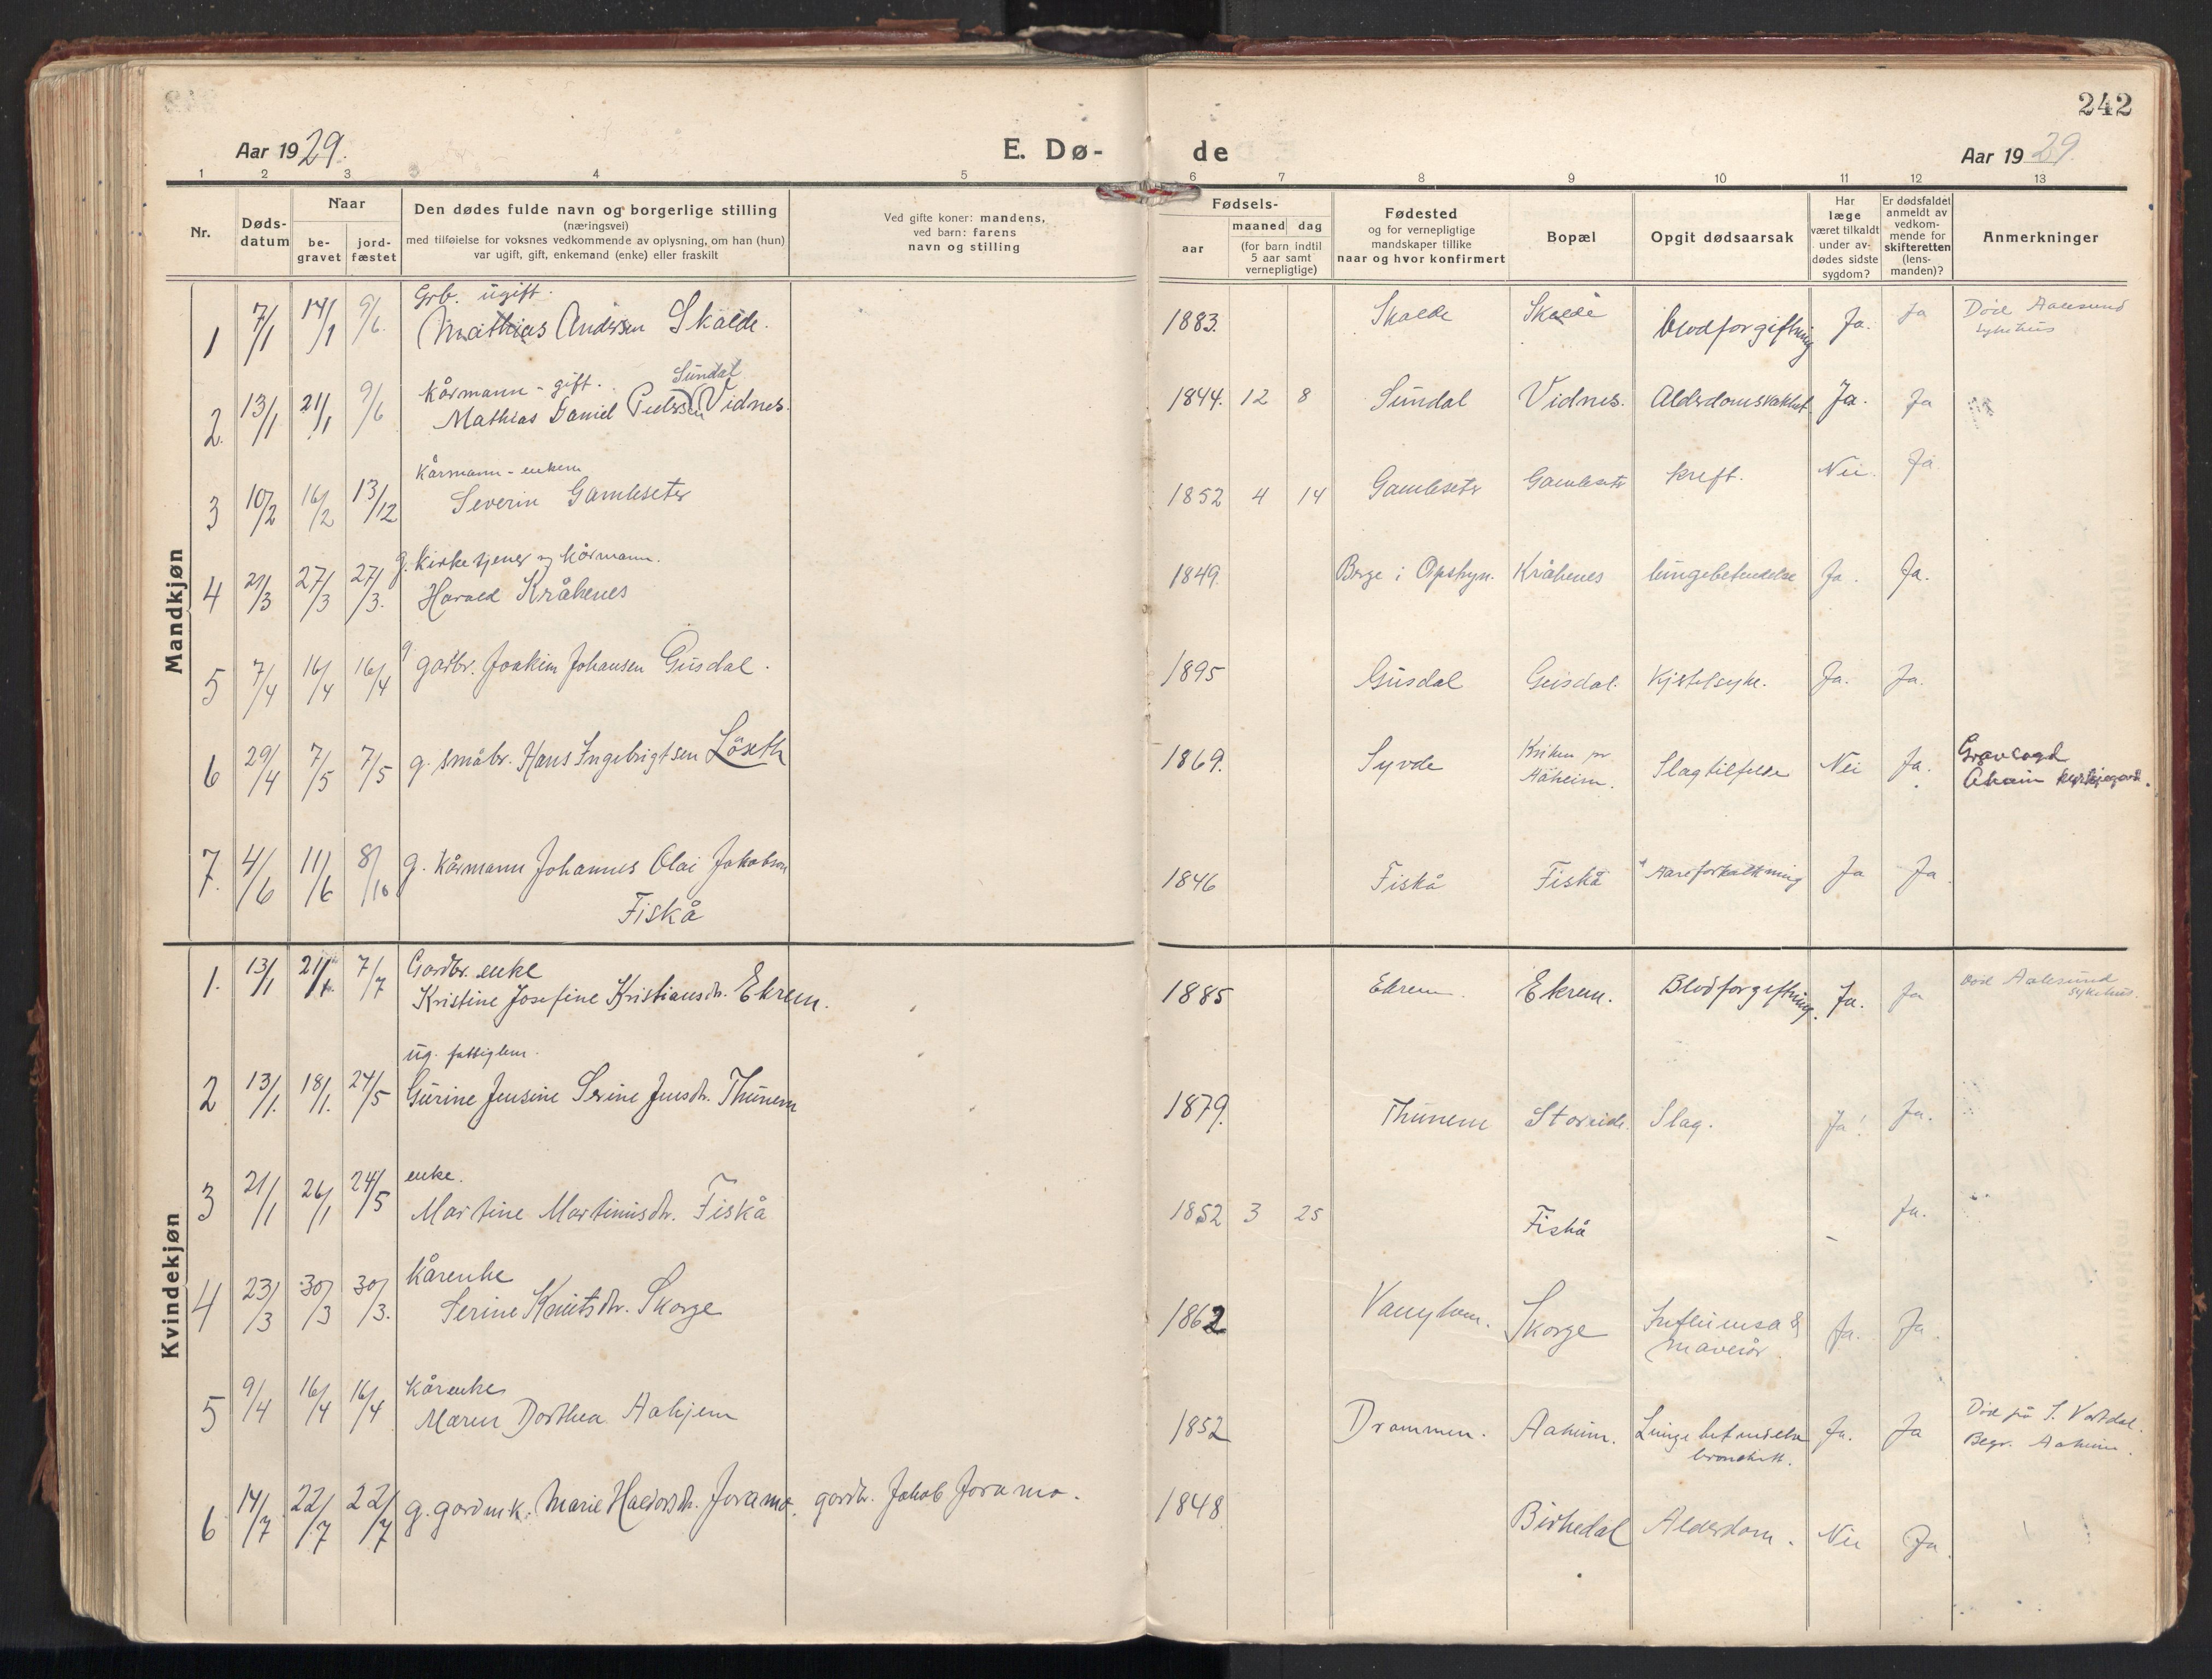 242
Aar 1929.
E. Dø-
de
Aar 1929.
1 2 3 4 5 6 7 8 9 10 11 12 13
Nr.
Døds-
datum
Naar
be-
gravet
jord-
fæstet
Den dødes fulde navn og borgerlige stilling
(næringsvei)
med tilføielse for voksnes vedkommende av oplysning, om han (hun)
var ugift, gift, enkemand (enke) eller fraskilt
Ved gifte koner: mandens,
ved barn: farens
navn og stilling
Fødsels-
aar
maaned dag
(for barn indtil
5 aar samt
vernepligtige)
Fødested
og for vernepligtige
mandskaper tillike
naar og hvor konfirmert
Bopæl
Opgit dødsaarsak
Har
læge
været tilkaldt
under av-
dødes sidste
sygdom?
Er dødsfaldet
anmeldt av
vedkom-
mende for
skifteretten
(lens-
manden)?
Anmerkninger
Mandkjøn
Grb. ugift.
1 7/1 14/1 9/6. Mathias Andersen Skalde. 1883. Skalde Skalde blodforgiftning Ja. Ja Død Aalesund
sykehus
Kårmann - gift. Sundal
2. 13/1 21/1 9/6 Mathias Daniel Pedersen Vidnes. 1844. 12 8 Sundal Vidnes. Alderdomsvakhet Ja. Ja
Kårmann - enkem
3 10/2 16/2 13/12 Severin Gamlseter 1852 4 14 Gamlseter Gamlseter kreft. Nei. Ja
g. Kirketjener og kårmann.
4 21/3 27/3 27/3. Harald Kråkenes 1849. Berge i Opstryn. Kråkenes lungebetendelse Ja. Ja.
5 7/4 16/4 16/4 g gardbr. Joakim Johansen Gusdal. 1895 Gusdal Gusdal. Kjertelsyke. Ja. Ja.
6 29/4 7/5 7/5 g. småbr. Hans Ingebrigtsen Löseth 1869. Syvde Kriken pr.
Aaheim. Slagtilfelde Nei Ja. Gravlagd
Åheim kyrkjegard.
7. 4/6 11/6 8/10 g. Kårmann Johannes Olai Jakobsen
Fiskå 1846 Fiskå Fiskå Aareforkalkning Ja Ja.
Kvindekjøn
Gardbr. enke
1. 13/1 21/1. 7/7 Kristine Josefine Kristiansdr. Ekrem. 1885 Ekrem. Ekrem. Blodforgiftning. Ja. Ja Død Aalesund
sykehus.
ug. fattiglem.
2 13/1. 18/1. 24/5 Gurine Jensine Serine Jensdr. Thunem 1879. Thunem Storeide. Slag. Ja! Ja.
enke.
3 21/1 26/1 24/5 Martine Martinusdr. Fiskå 1852 3 25 Fiskå - Ja.
Kårenke
4 23/3 30/3 30/3. Serine Knutsdr. Skorge 1862 Vanylven. Skorge Influensa &
mavesår Ja. Ja.
Kårenke
5 9/4 16/4 16/4 Maren Dorthea Aahjem 1852 Drammen. Aaheim. Lungebetendelse
bronchitt. Ja. Ja Død på S. Vartdal.
Begr. Aaheim.
6 14/7 22/7 22/7 g. gardm.k. Marie Haldorsdr. Joramo. gardbr. Jakob Joramo. 1848 Birkedal Alderdom. Nei Ja.